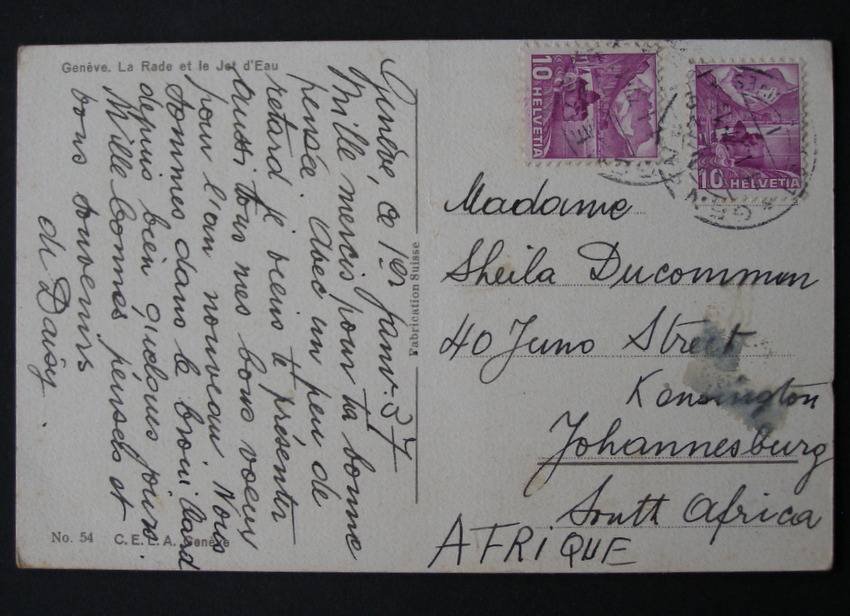 Genève. La Rade et le Jet d'Eau
Genève, ce 1er janv. 37
Mille mercis pour ta bonne
pensée. Avec un peu de
retard je viens te présenter
aussi tous mes bons voeux
pour l'an nouveau. Nous
sommes dans le brouillard
depuis bien quelques jours.
Mille bonnes pensées et
bons souvenirs
de Daisy.
Fabrication Suisse
No. 54 C. E. L. A. Genève
10 HELVETIA
10 HELVETIA
Madame
Sheila Ducommun
40 Juno Street
Kensington
Johannesburg
South Africa
AFRIQUE